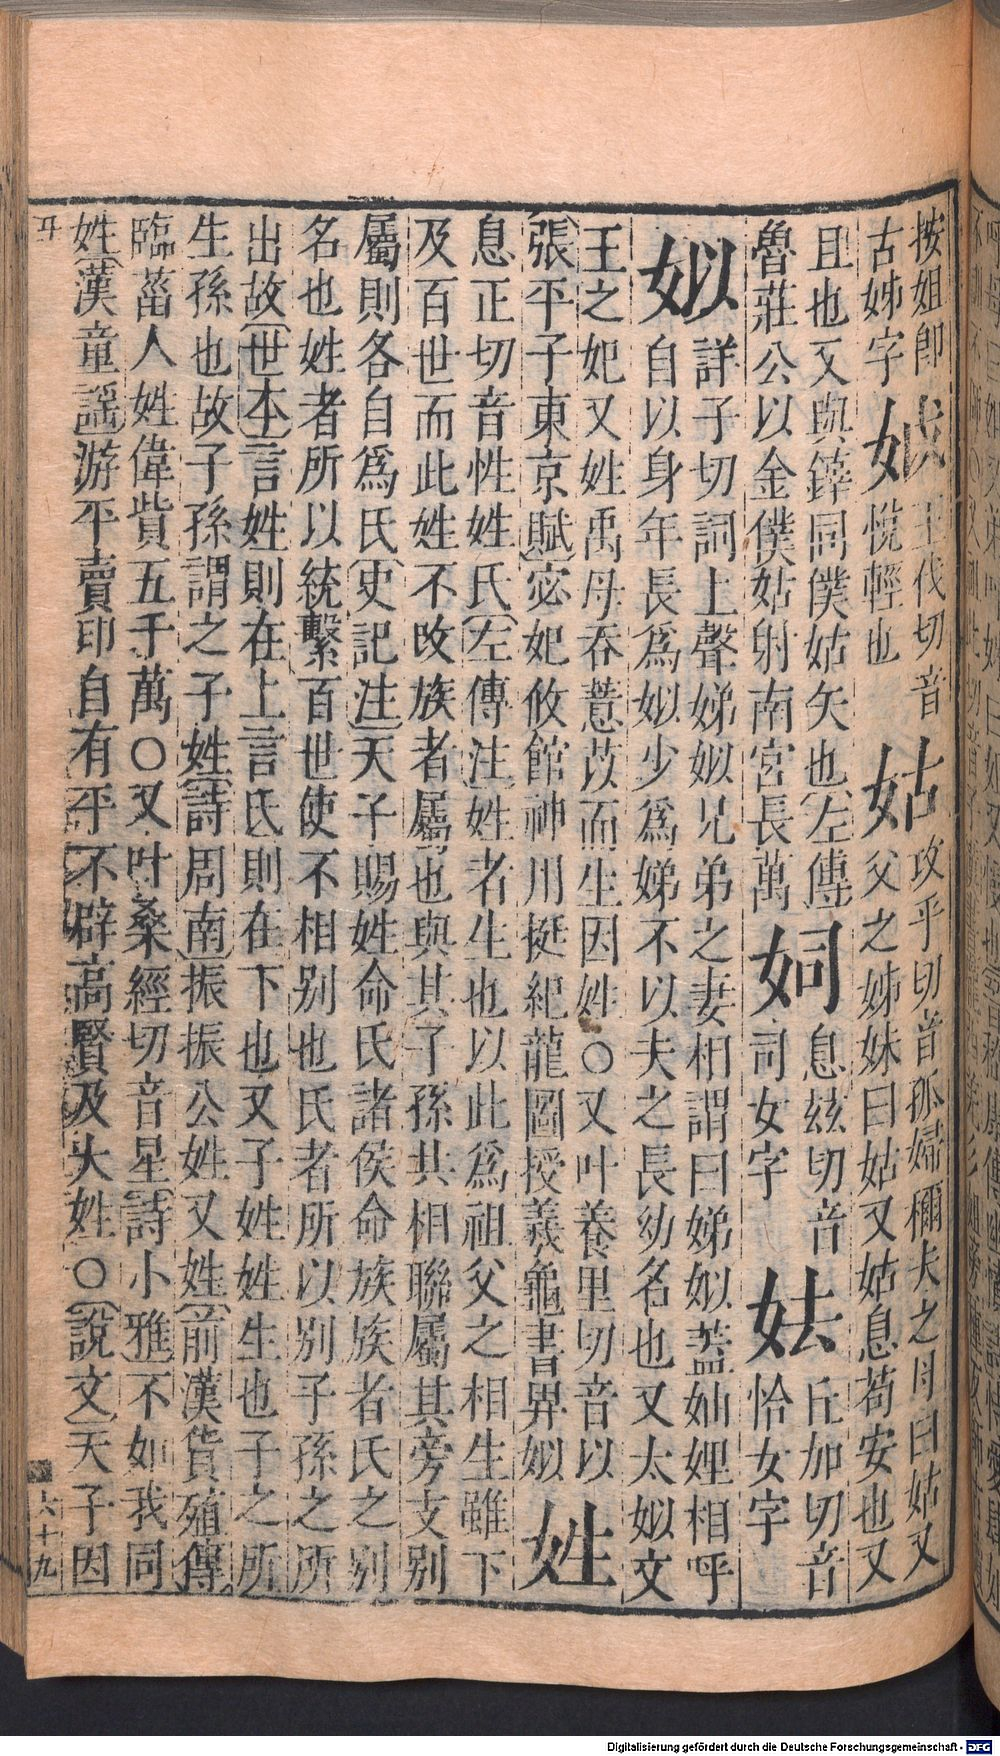 按姐即
古姊字
娍
王伐切音
悅輕也
姑
攻乎切音孤婦稱夫之母曰姑又
父之姊妹曰姑又姑息苟安也又
且也又與鎨同僕姑矢也左傳
魯莊公以金僕姑射南宮長萬
姛
息玆切音
司女字
㚰
丘加切音
恰女字
姒
詳子切詞上聲娣姒兄弟之妻相謂曰娣姒蓋妯娌相呼
自以身年長爲姒少爲娣不以夫之長幼名也又太姒文
王之妃又姓禹母吞薏苡而生因姓○又叶養里切音以
張平子東京賦宓妃攸館神川挺紀龍圖授義龜書畀姒
姓
息正切音性姓氏左傳注姓者生也以此爲祖父之相生雖下
及百世而此姓不改族者屬也與其子孫共相聯屬其旁支別
屬則各自爲氏史記注天子賜姓命氏諸侯命族族者氏之別
名也姓者所以統繫百世使不相別也氏者所以別子孫之所
出故世本言姓則在上言氏則在下也又子姓姓生也子之所
生孫也故子孫謂之子姓詩周南振振公姓又姓前漢貨殖傳
臨菑人姓偉貲五千萬○又叶桑經切音星詩小雅不如我同
姓漢童謡游平賣印自有平不辟高賢及大姓○說文天子因
六十九
Digitalisierung gefördert durch die Deutsche Forschungsgemeinschaft - DFG